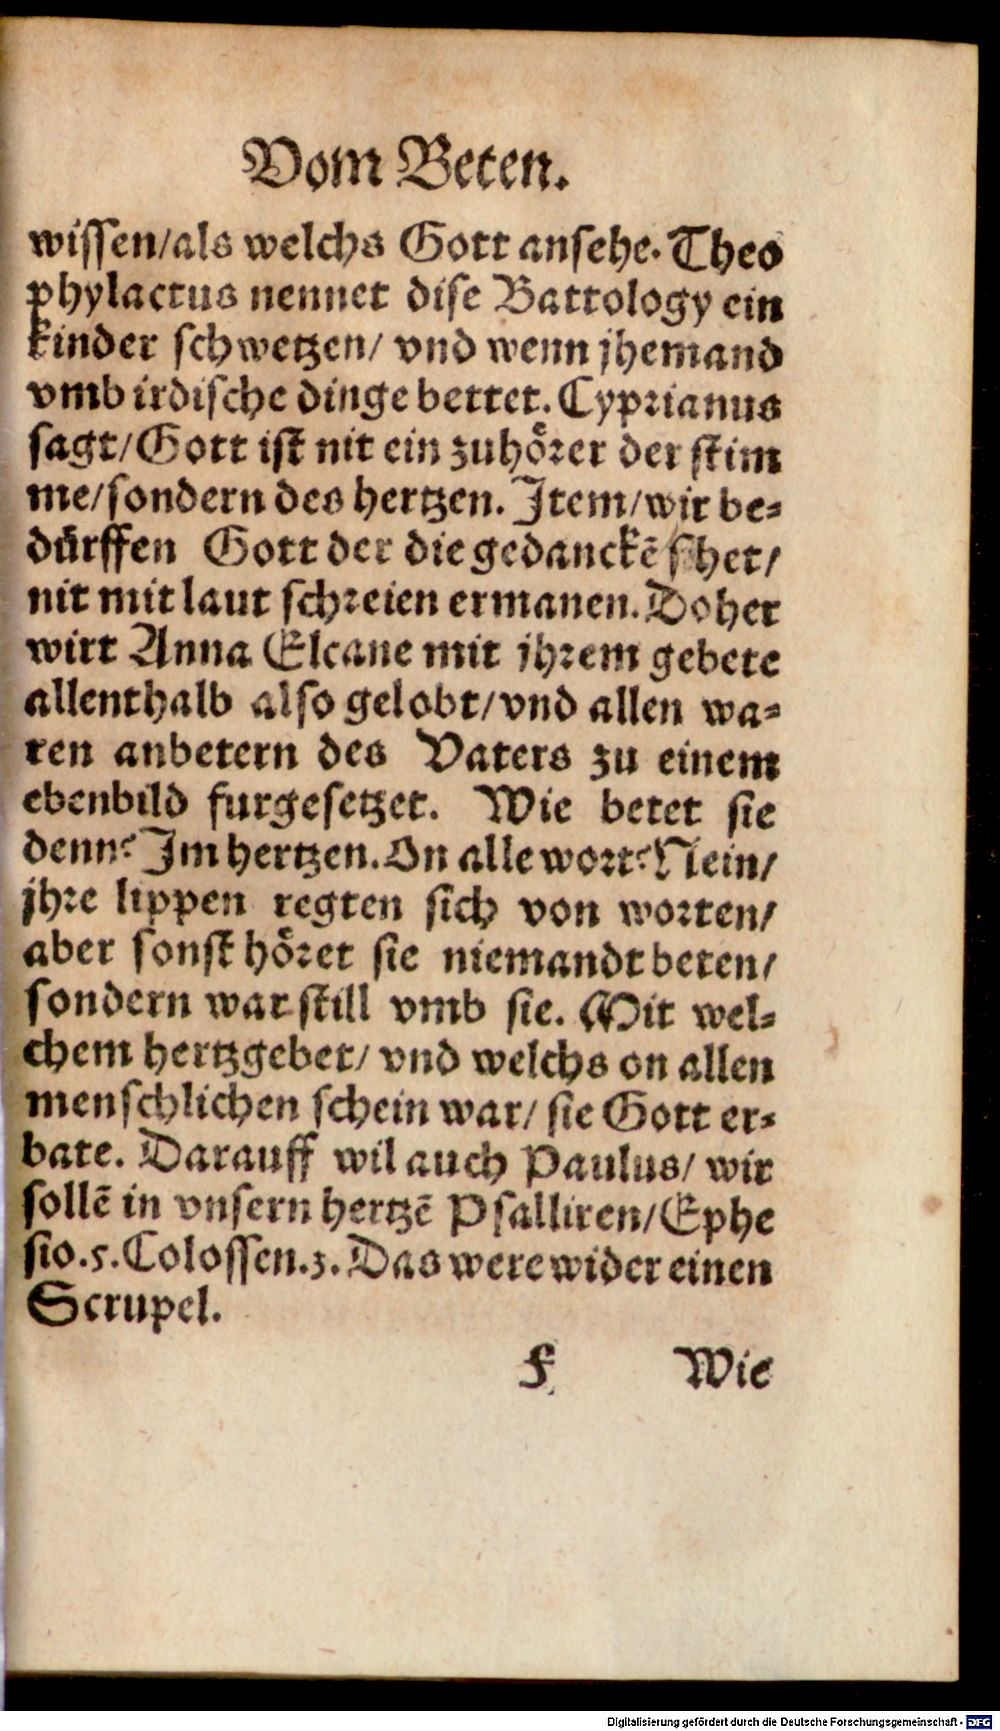 Vom Beten.
wissen/als welchs Gott ansehe. Theo
phylactus nennet dise Battology ein
kinder schwetzen/ vnd wenn jhemand
vmb irdische dinge bettet. Cyprianus
sagt/Gott ist nit ein zuhoͤrer der stim
me/sondern des hertzen. Item/wir be⸗
duͤrffen Gott der die gedanckē sihet/
nit mit laut schreien ermanen. Doher
wirt Anna Elcane mit jhrem gebete
allenthalb also gelobt/vnd allen wa⸗
ren anbetern des Vaters zu einem
ebenbild furgesetzet. Wie betet sie
denn? Im hertzen. On alle wort? Nein/
jhre lippen regten sich von worten/
aber sonst hoͤret sie niemandt beten/
sondern war still vmb sie. Mit wel⸗
chem hertzgebet/ vnd welchs on allen
menschlichen schein war/ sie Gott er⸗
bate. Darauff wil auch Paulus/ wir
sollē in vnsern hertzē Psalliren/Ephe
sio.5.Colossen.3. Das were wider einen
Scrupel.
F Wie
Digitalisierung gefördert durch die Deutsche Forschungsgemeinschaft - DFG